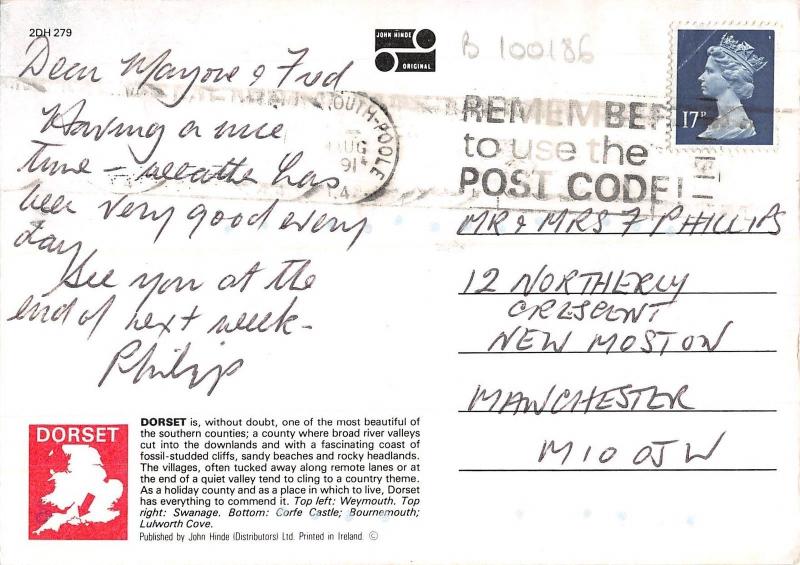 2DH 279
JOHN HINDE
ORIGINAL
B 100186
17P
OUTH-POOLE
AUG
91
REMEMBER
to use the
POST CODE!
Dear Marjorie & Fred
Having a nice
time - weather has
been very good every
day
See you at the
end of next week -
Philip
MR & MRS F PHILLIPS
12 NORTHERLY
CRESENT
NEW MOSTON
MANCHESTER
M10 OJW
DORSET
DORSET is, without doubt, one of the most beautiful of
the southern counties; a county where broad river valleys
cut into the downlands and with a fascinating coast of
fossil-studded cliffs, sandy beaches and rocky headlands.
The villages, often tucked away along remote lanes or at
the end of a quiet valley tend to cling to a country theme.
As a holiday county and as a place in which to live, Dorset
has everything to commend it. Top left: Weymouth. Top
right: Swanage. Bottom: Corfe Castle; Bournemouth;
Lulworth Cove.
Published by John Hinde (Distributors) Ltd. Printed in Ireland. ©